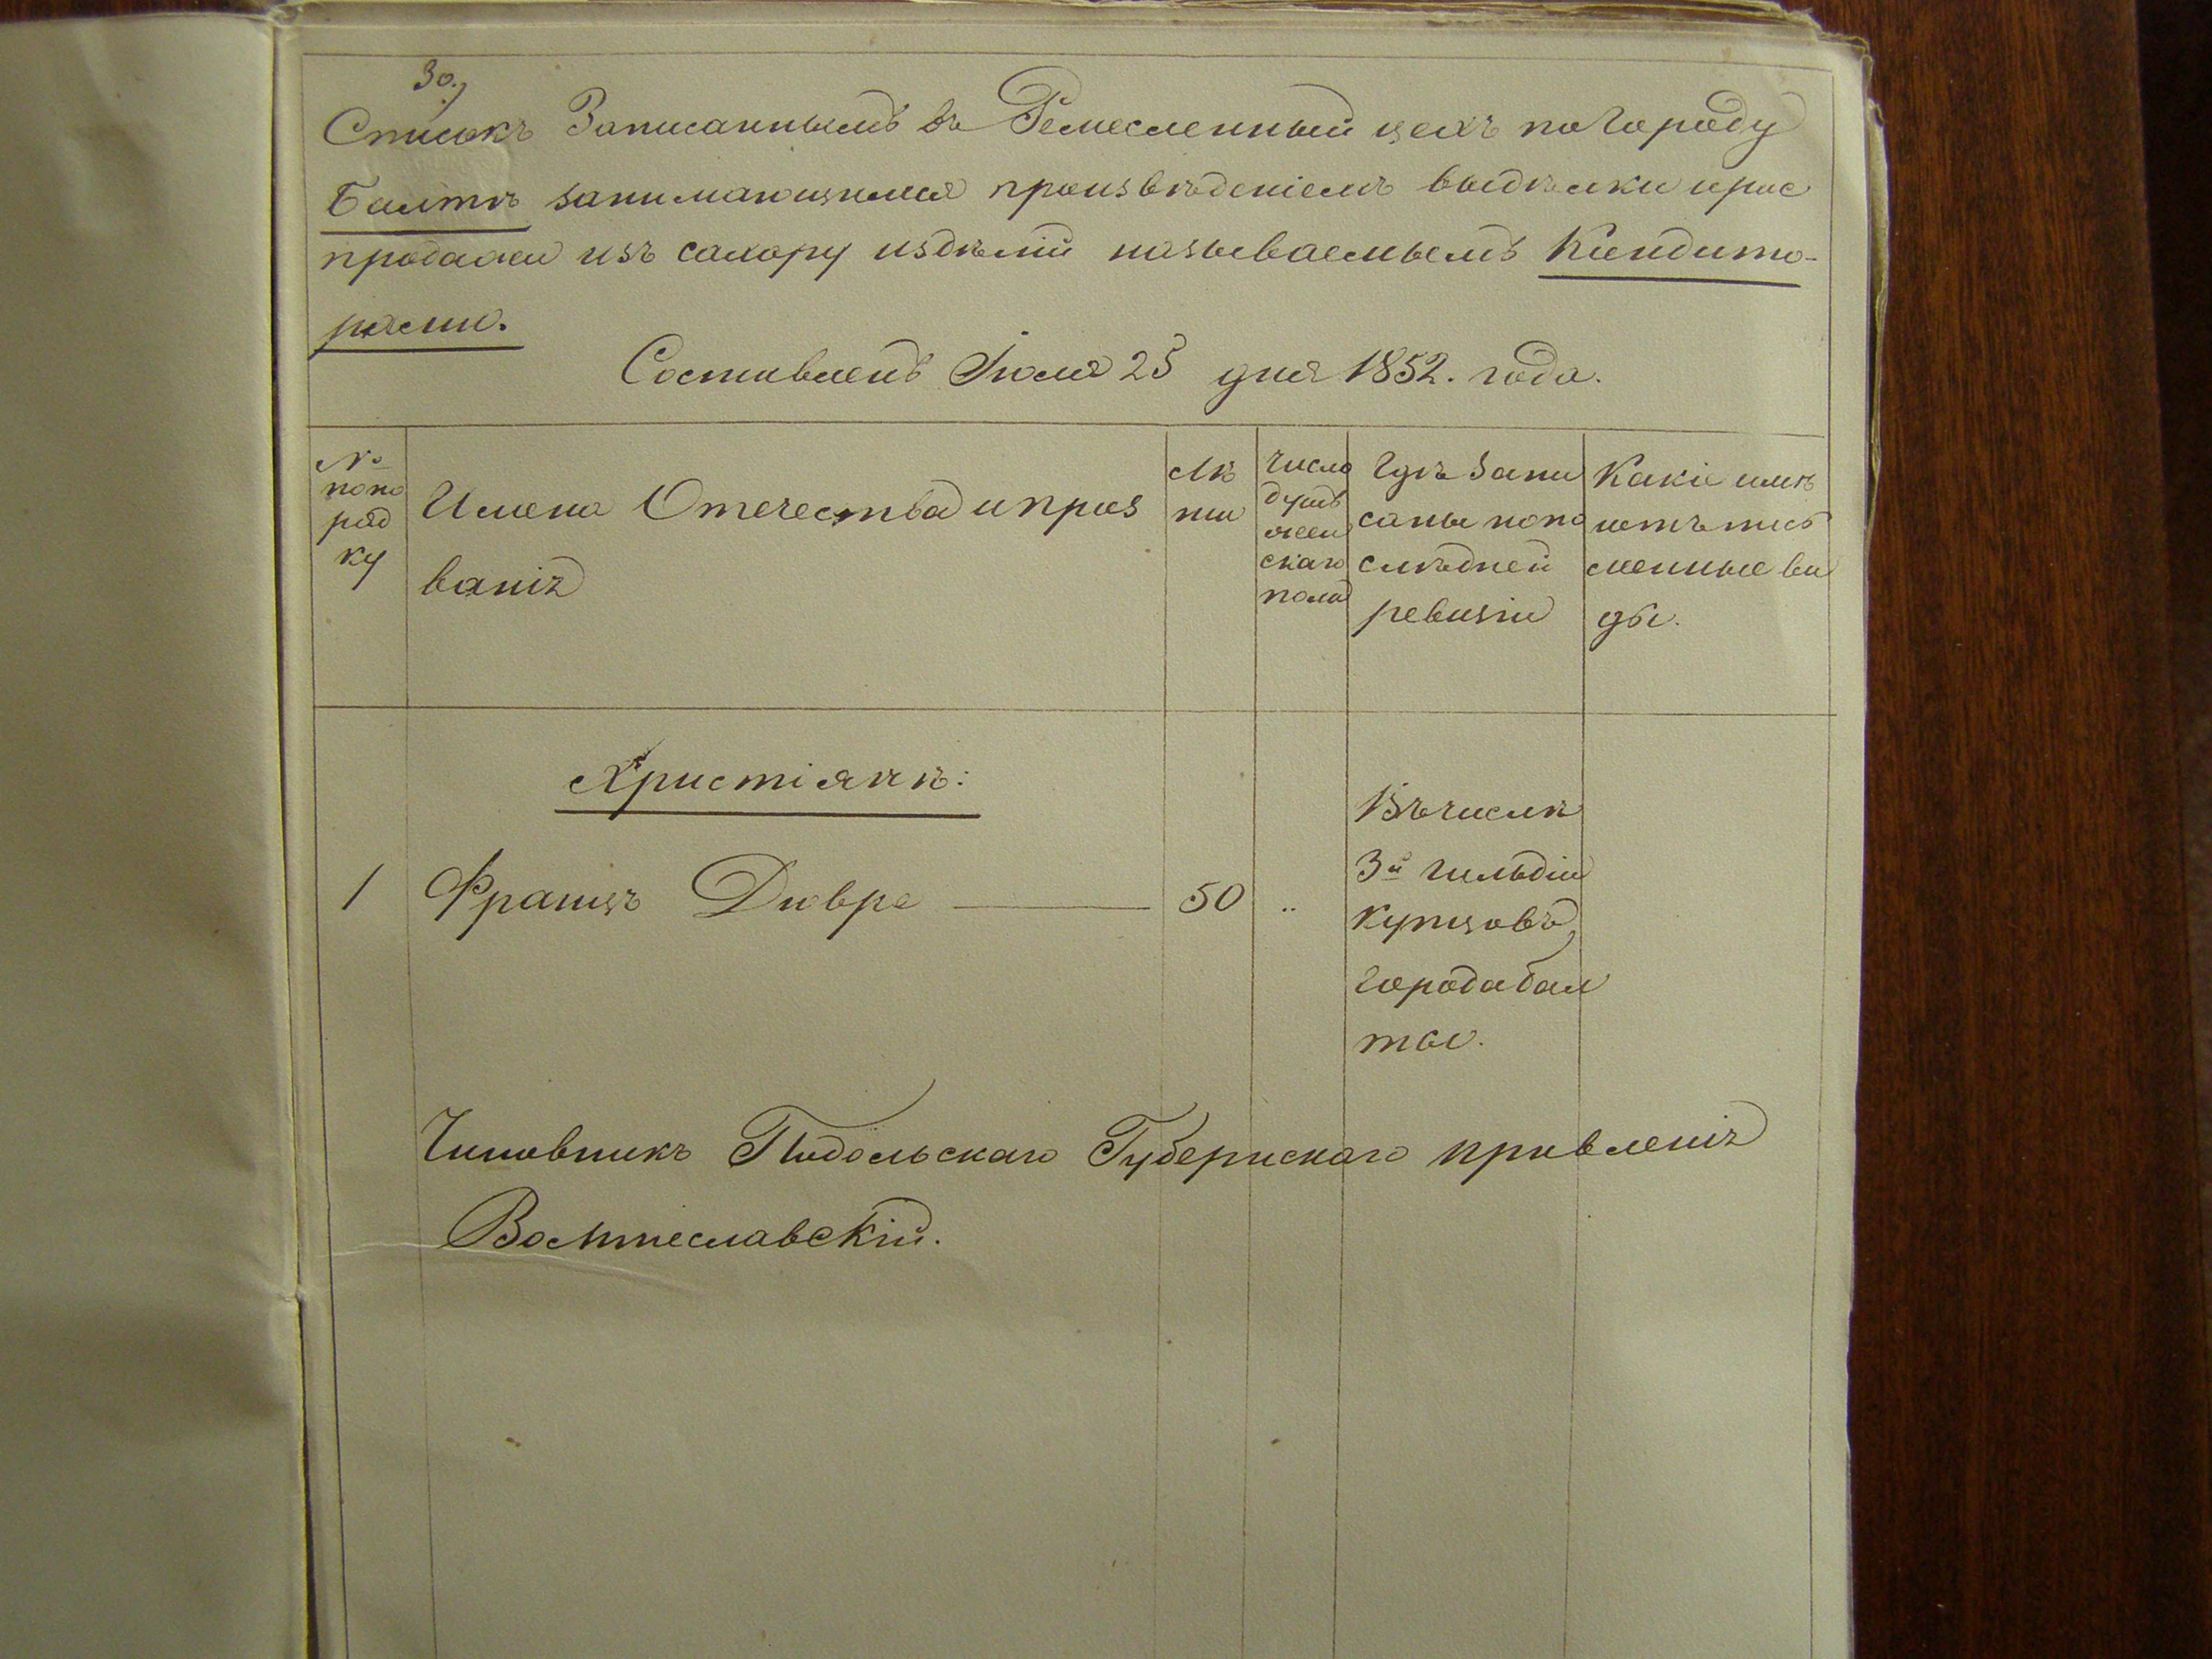 30.)
Списокъ Записаннымъ въ Ремесленный цехъ по городу
Балтѣ занимающимся произвѣденіемъ выдѣлки ирас
продажи изъ сахору издѣлій називаемымъ Кандито-
рами.
Составленъ Іюля 25 дня 1852. года.
№
попо
ряд
ку
Имена Отечества и проз
ваніѣ
Лѣ
ты
Число
душъ
жен
скаго
пола
Гдѣ запи
саны попо
слѣдней
ревизіи
Какіе имѣ
ютъ пись
менные ви
ды.
Христіянѣ:
1 Францъ Дювре — 50 „
Въ числѣ
3й гильдіи
купцовъ
города бал
ты.
Чиновникъ Подольскаго Губернскаго правленіѣ